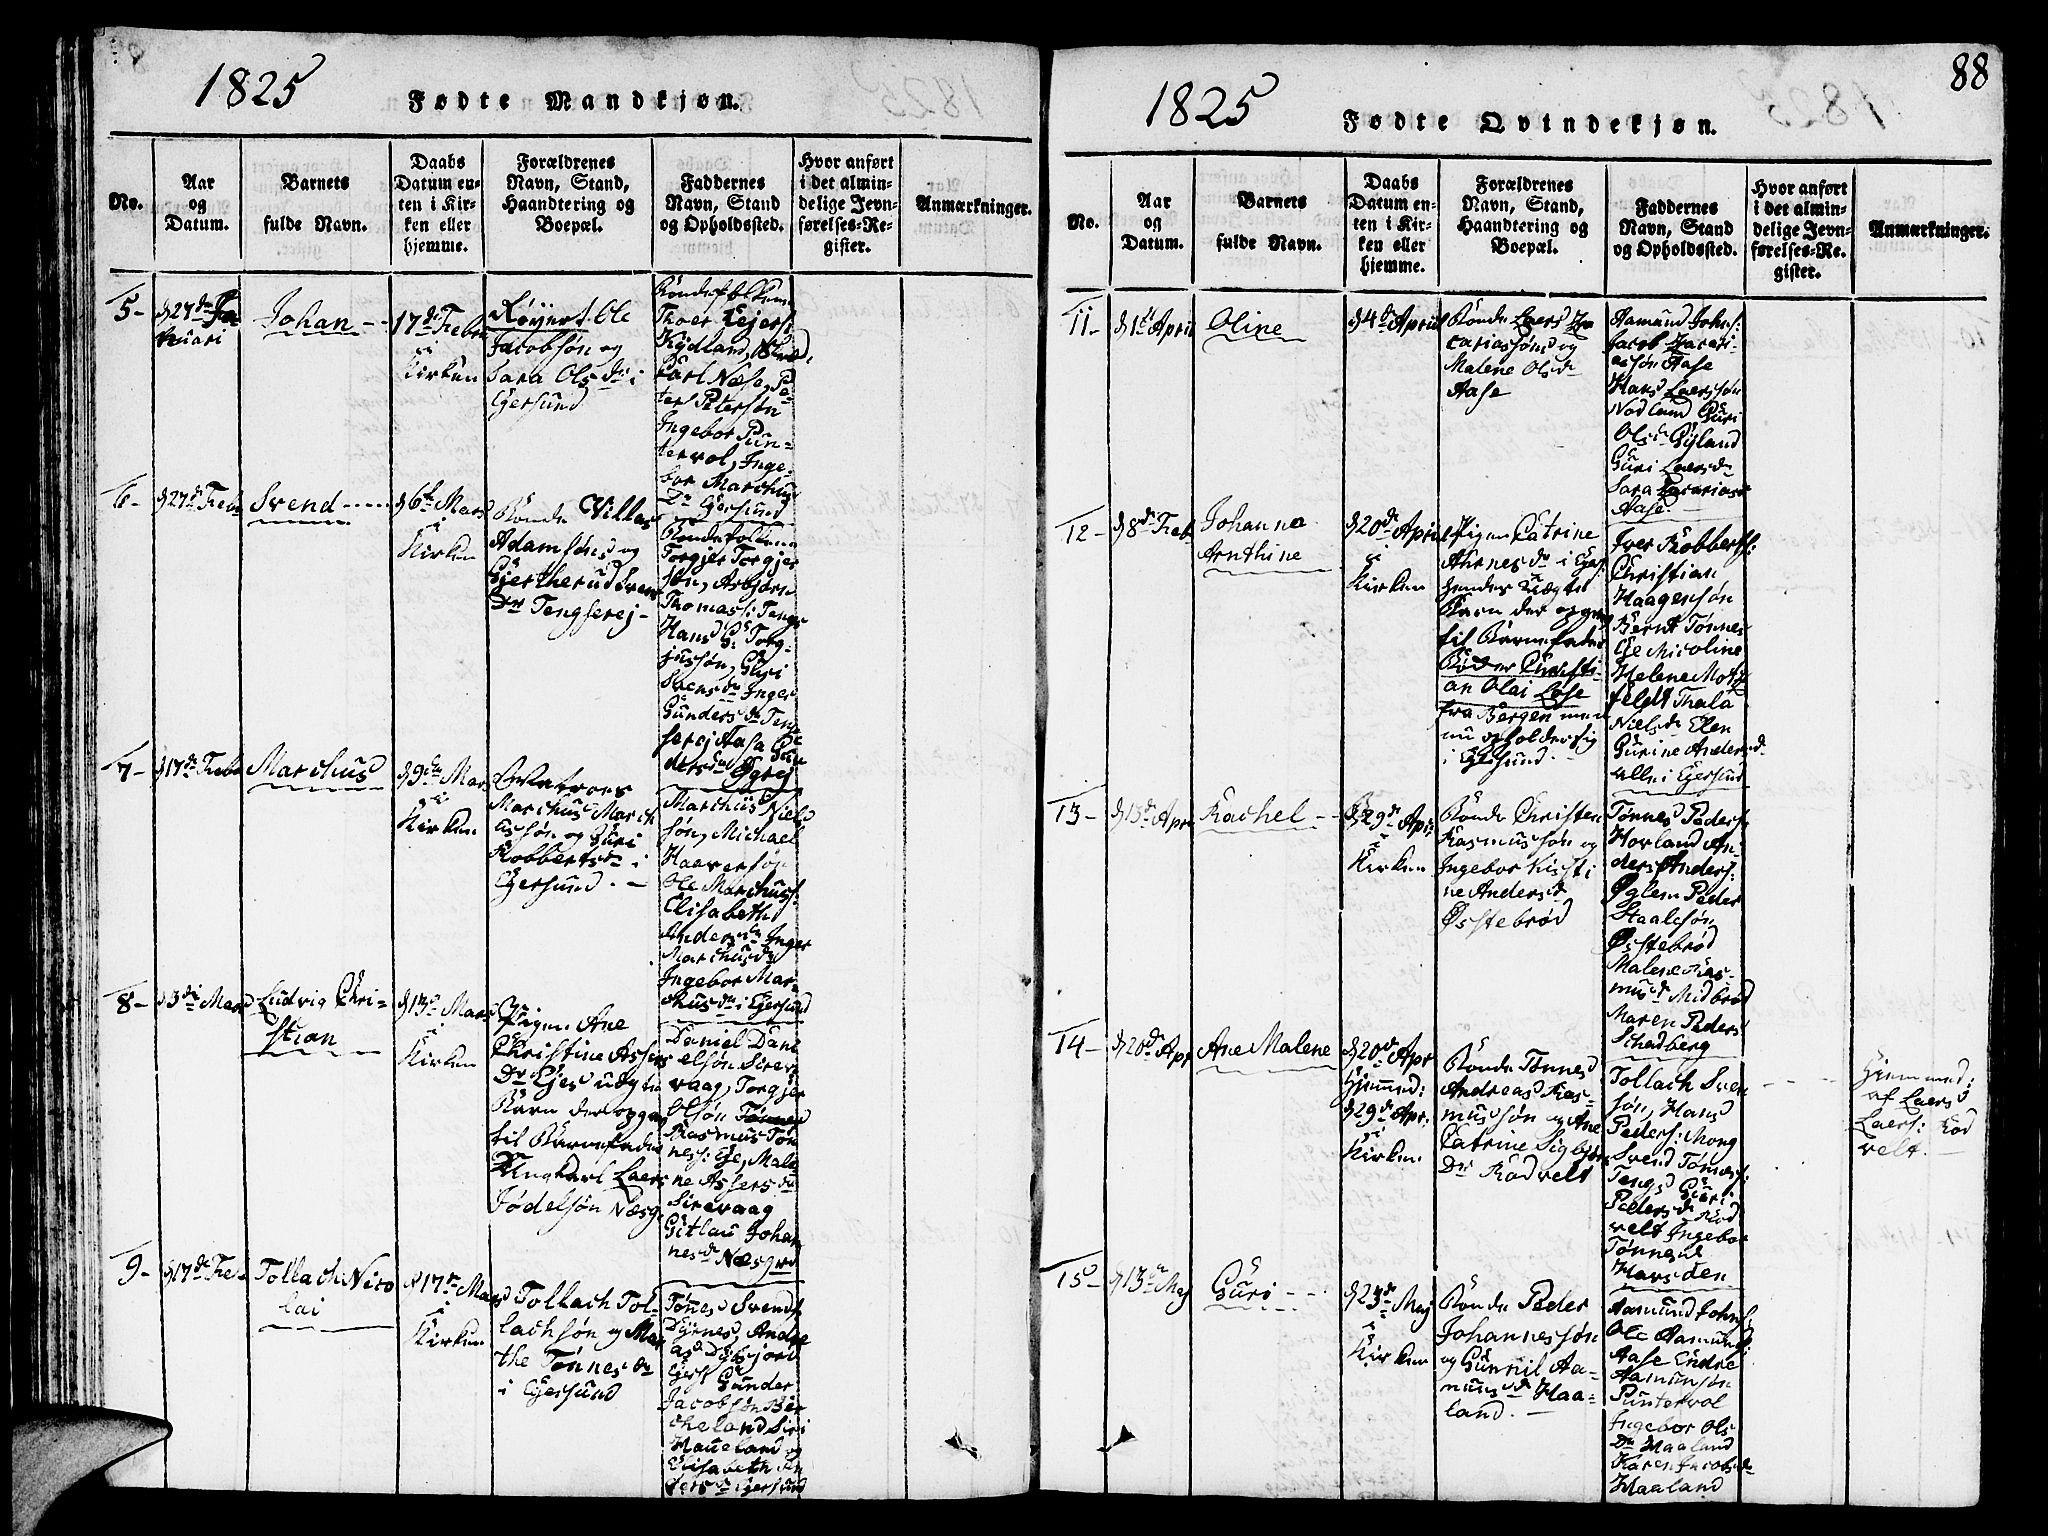 1825
Fødte Mandkjøn.
No.
Aar
og
Datum.
Barnets
fulde Navn.
Daabs
Datum en-
ten i Kir-
ken eller
hjemme.
Forældrenes
Navn, Stand,
Haandtering og
Boepæl.
Faddernes
Navn, Stand
og Opholdssted.
Hvor anført
i det almin-
delige Jevn-
førelses-Re-
gister.
Anmærkninger.
5-
Johan
17de Febr
i
Kirken
Ole
Jacobsøn og
Sara Olsdr i
Egersund
Thoer
Kydland,
Carl Næse, Pe-
ter Petersøn
Ingebor Pun-
tervol, Inge-
bor Marchus
Dr Egersund
6-
d 27de Febr
Svend
d 6te Mars
i
Kirken
Bonde Villas
Adamsøn og
Gjertherud Svens
Dr Tengserej-
Bondefolkene
Torgjer Torgjer
søn, Asbjørn
Thomass: Tengs
Hans G: Torg-
jussøn, Guri
Svensdr Inger
Gundersdr Teng
serej Aasa Gun
dersdr Egrej
7-
d 17de Febr
Marchus
d 9de Mar
i
Kirken
Marchus March
ussøn og Guri
Robbertsdr i
Egersund.
Marchus Niels
søn, Michael
Haaversøn
Ole Marchuss:
Elisabeth
Andersdr Inger
Marchusdr
Ingebor Mar-
chusdr i Egersund
8-
d 3de Mars
Ludvig Chri-
stian
d 13de Mars
i
Kirken
Pigen Ane
Christine Assers
Dr Ejes udgte
Barn der opgav
til Barnefader
Ungkarl Laers
Jødelsøn Næsg
Daniel Dani
elsøn Sire-
vaag, Torgjer
Olsøn
Rasmus Tøn
ness: Eje, Male
ne Assersdr
Sirevaag
Gitlau Johan
nesdr Næsgrd
9-
d 17de Fe
Tollach Nico
lai
d 17de Mars
i
Kirken
Tollach Tol-
lachsøn og Mar
the Tønnesdr
i Egersund
Tønes Svends
Andre
as
Egers Gunder
Jacobsøn Bir
cheland Siri
Haueland og
Elisabeth
dersdr Egersund
88
1825
Fødte Qvindekjøn.
No.
Aar
og
Datum.
Barnets
fulde Navn.
Daabs
Datum en-
ten i Kir-
ken eller
hjemme.
Forældrenes
Navn, Stand,
Haandtering og
Boepæl.
Faddernes
Navn, Stand
og Opholdssted.
Hvor anført
i det almin-
delige Jevn-
førelses-Re-
gister.
Anmærkninger.
11-
d 1st April
Oline
d 4de April
Bonde Laers Za
cariassøn og
Malene Olsdr
Aase
Aamund Johs:
Jacob Zacari-
assøn Aase
Hans Laerssøn
Nodland Guri
Olsdr Egland
Guri Laersdr
Sara Zacarias
Aase.
12-
d 8de Febr
Johanna
Arnthine
d 20de April
i
Kirken
Pigen Catrine
Ahrnesdr i Eger
hendes uægte
Barn der opgav
til Barnefader
Bødker Christi-
an Olai Lose
fra Bergen men
nu opholder sig
i Egersund.
Iver Robberts:
Christian
Haagensøn
Bernt Tønnes
Eje Nicoline
Helene Motz
feldt Thala
Nielsdr Elen
Gurine Andersdr
alle i Egersund
13-
d 13de Apri
Rachel
d 29de Apri
i
Kirken
Bonde Christen
Rasmussøn og
Ingebor Kirsti
ne Andersdr
Østebrød
Tønnes Peders:
Hovland An-
ders Anders:
Øglem Peder
Staalesøn
Østebrød
Malene Ras-
musdr Midbrød
Maren Peders
Schadberg
14-
d 20de Apr
Ane Malene
d 20de Apr
Hjemmed:
d 29de Apr:
i
Kirken
Bonde Tønnes
Andreas Ras-
mussøn og Ane
Catrine Sigbjørns
Dr Rodvelt
Tollach Sven
søn, Hans
Peders: Mong
Svend Tønness:
Tengs Guri
Pedersdr Rod
velt Ingebor
Tønnesdr
Havsden
Hiemmed:
af Laers
Laers: Rod
velt.
15-
d 13de Maj
Guri
d 23de Maj
i
Kirken
Bonde Peder
Johannessøn
og Gunnil Aa-
munsdr Haa-
land.
Aamund Johns:
Ole Aamunds:
Aase Endre
Aamunsøn
Puntervol
Ingebor Ols
Dr Haaland
Karen Jacobsdr
Haaland